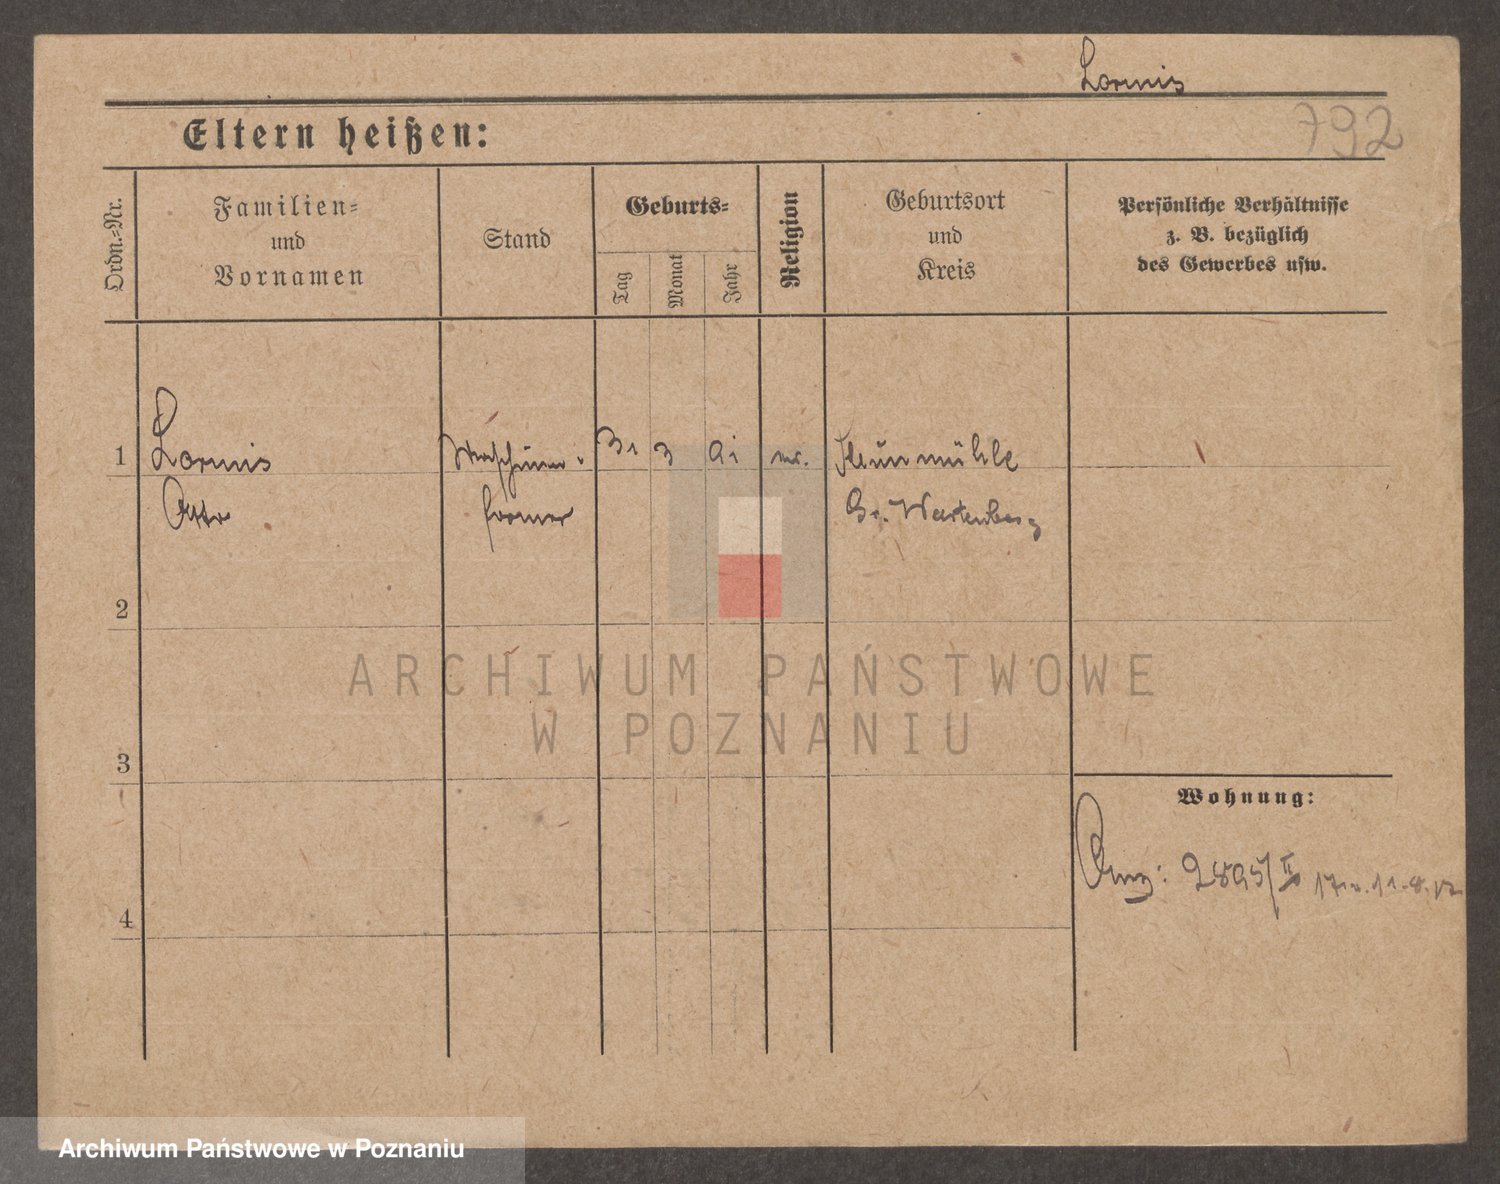 Lormis
792
Eltern heißen:
Ordn.=Nr.
Familien=
und
Vornamen
Stand
Geburts=
Tag
Monat
Jahr
Religion
Geburtsort
und
Kreis
Persönliche Verhältnisse
z. B. bezüglich
des Gewerbes usw.
1
Lormis
Otto
Maschinen-
former
31
3
91
mühle
Gr. Wartenberg
2
3
4
Wohnung:
Anz: 2895/II
ARCHIWUM PAŃSTWOWE
W POZNANIU
Archiwum Państwowe w Poznaniu